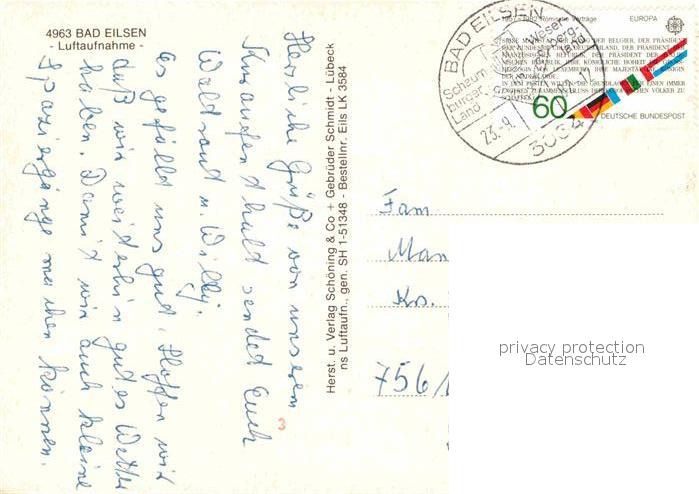 4963 BAD EILSEN
- Luftaufnahme -
Herzliche Grüße von unserem
Kuraufenthalt sendet Euch
Waldraud u. Willy.
Es gefällt uns gut. Hoffen wir
daß wir weiterhin gutes Wetter
haben. Damit wir auch kleine
Spaziergänge machen können.
Herst. u. Verlag Schöning & Co + Gebrüder Schmidt - Lübeck
ns Luftaufn., gen. SH 1-51348 - Bestellnr. Eils LK 3584
3
BAD EILSEN
Schaum-
burger
Land
Weser
23.-9.
3064
1957-1982 Römische Verträge
EUROPA
60
DEUTSCHE BUNDESPOST
Fam
Man
Ks.
756/
privacy protection
Datenschutz